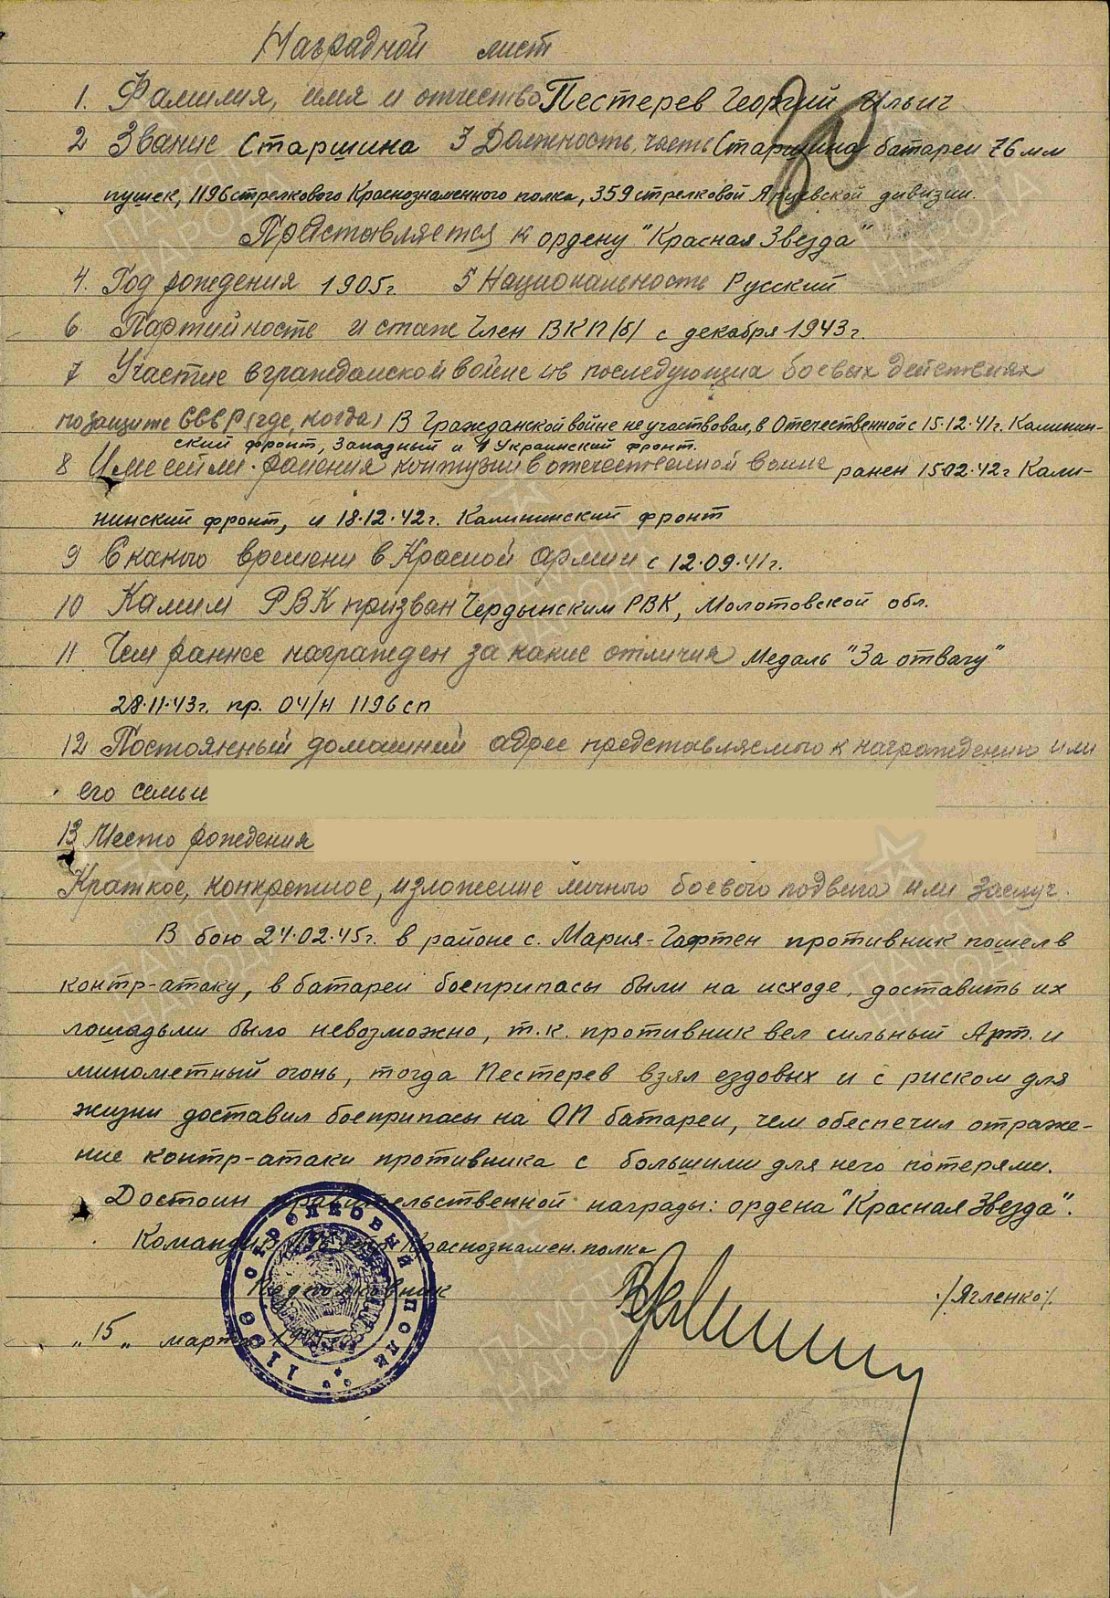 Наградной лист
1. Фамилия, имя и отчество Пестерев Георгий Ильич
2 Звание Старшина 3 Должность, часть Старшина батареи 76 мм
пушек, 1196 стрелкового Краснознаменного полка, 359 стрелковой Ярцевской дивизии.
Представляется к ордену "Красная Звезда"
4. Год рождения 1905г. 5 Национальность Русский
6 Партийность и стаж Член ВКП/б/ с декабря 1943г.
7 Участие в гражданской войне и в последующих боевых действиях
по защите СССР (где, когда) В Гражданской войне не участвовал, в Отечественной с 15.12.41г. Калинин-
ский фронт, Западный и 1 Украинский фронт.
8 Имеет ли ранения контузии в отечественной войне ранен 15.02.42г Кали-
нинский фронт, и 18.12.42г. Калининский фронт
9 С какого времени в Красной армии с 12.09.41г.
10 Каким РВК призван Чердынским РВК, Молотовской обл.
11 Чем раннее награжден за какие отличия Медаль "За отвагу"
28.11.43г. пр. 04/н 1196 сп
12 Постоянный домашний адрес представляемого к награждению или
его семьи
13 Место рождения
Краткое, конкретное, изложение личного боевого подвига или заслуг.
В бою 24.02.45г. в районе с. Мария-Гафтен противник пошел в
контр-атаку, в батареи боеприпасы были на исходе, доставить их
лошадьми было невозможно, т.к. противник вел сильный Арт. и
минометный огонь, тогда Пестерев взял ездовых и с риском для
жизни доставил боеприпасы на ОП батареи, чем обеспечил отраже-
ние контр-атаки противника с большими для него потерями.
Достоин правительственной награды: ордена "Красная Звезда".
Командир 1196 стр Краснознамен. полка
Подполковник /Ягленко/.
"15" марта 1945г.
1196 СТРЕЛКОВЫЙ ПОЛК
ПАМЯТЬ НАРОДА